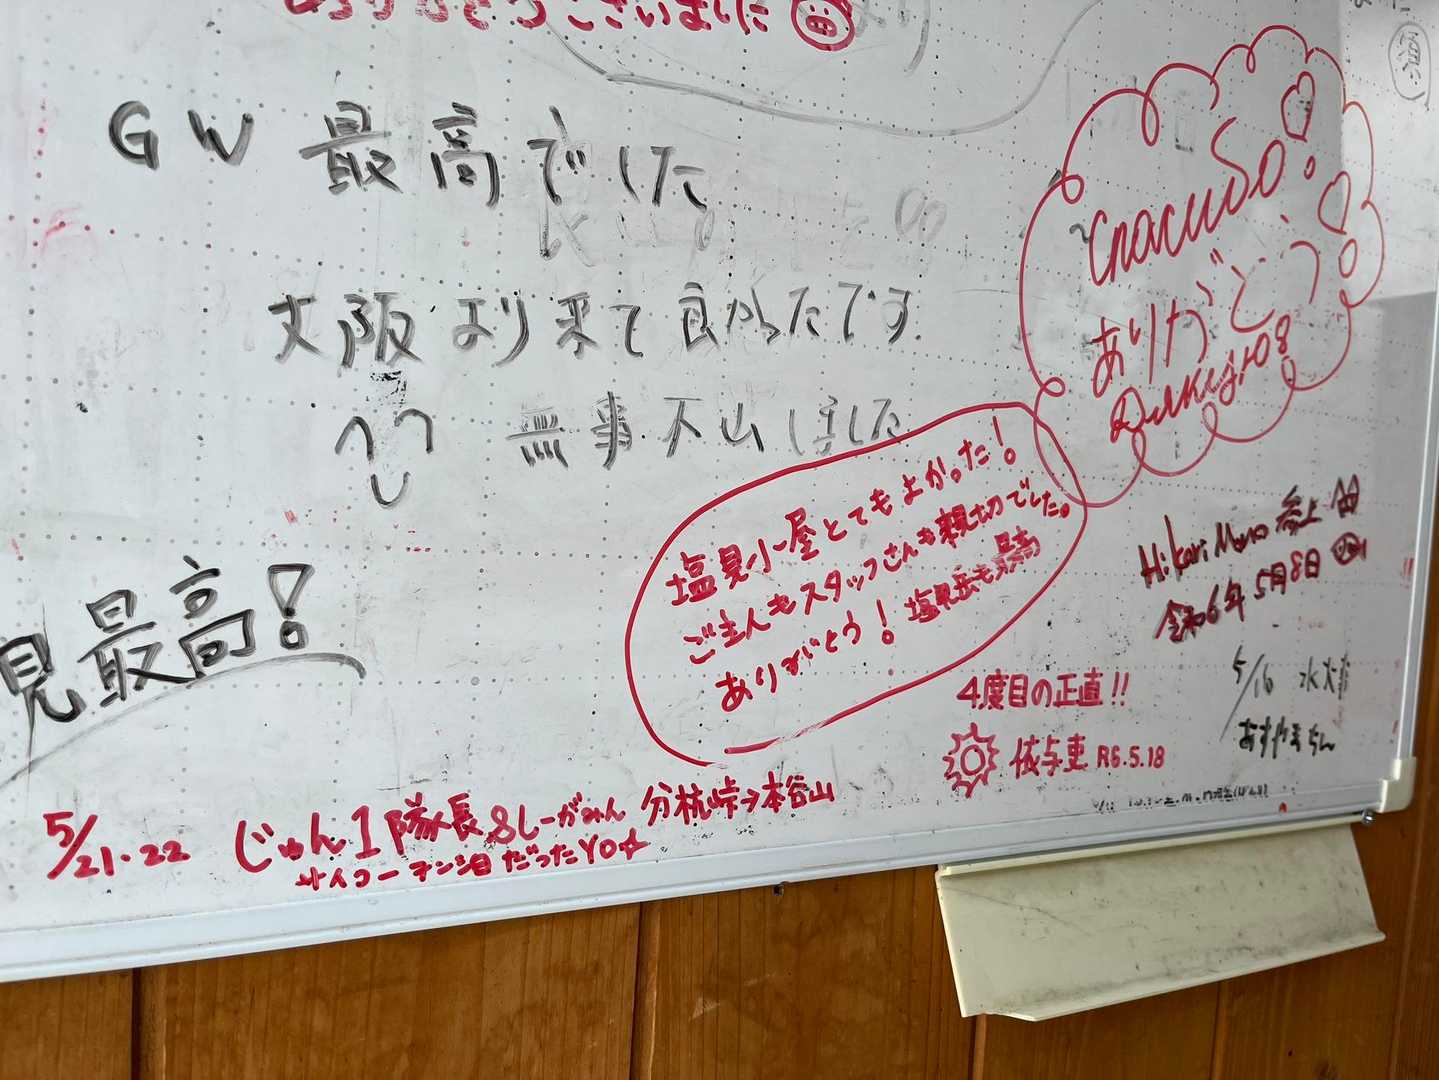 ありがとうございました
GW 最高でした
大阪より来て良かったです.
無事下山しました
見最高!
Спасибо!
ありがとう
Дякую!
塩見小屋とてもよかった!
ご主人もスタッフさんも親切でした。
ありがとう! 塩見岳も最高
Hikari Muro 参上
令和6年5月8日
5/16 水
4度目の正直!!
R6.5.18
5/21・22 じゅん1隊長&しーがみん 分杭峠→本谷山
サイコー テンション だったYO